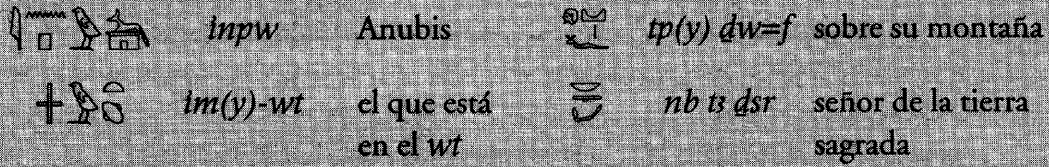 inpw Anubis tp(y) ḏw=f sobre su montaña
im(y)-wt el que está en el wt nb tꜣ ḏsr señor de la tierra sagrada